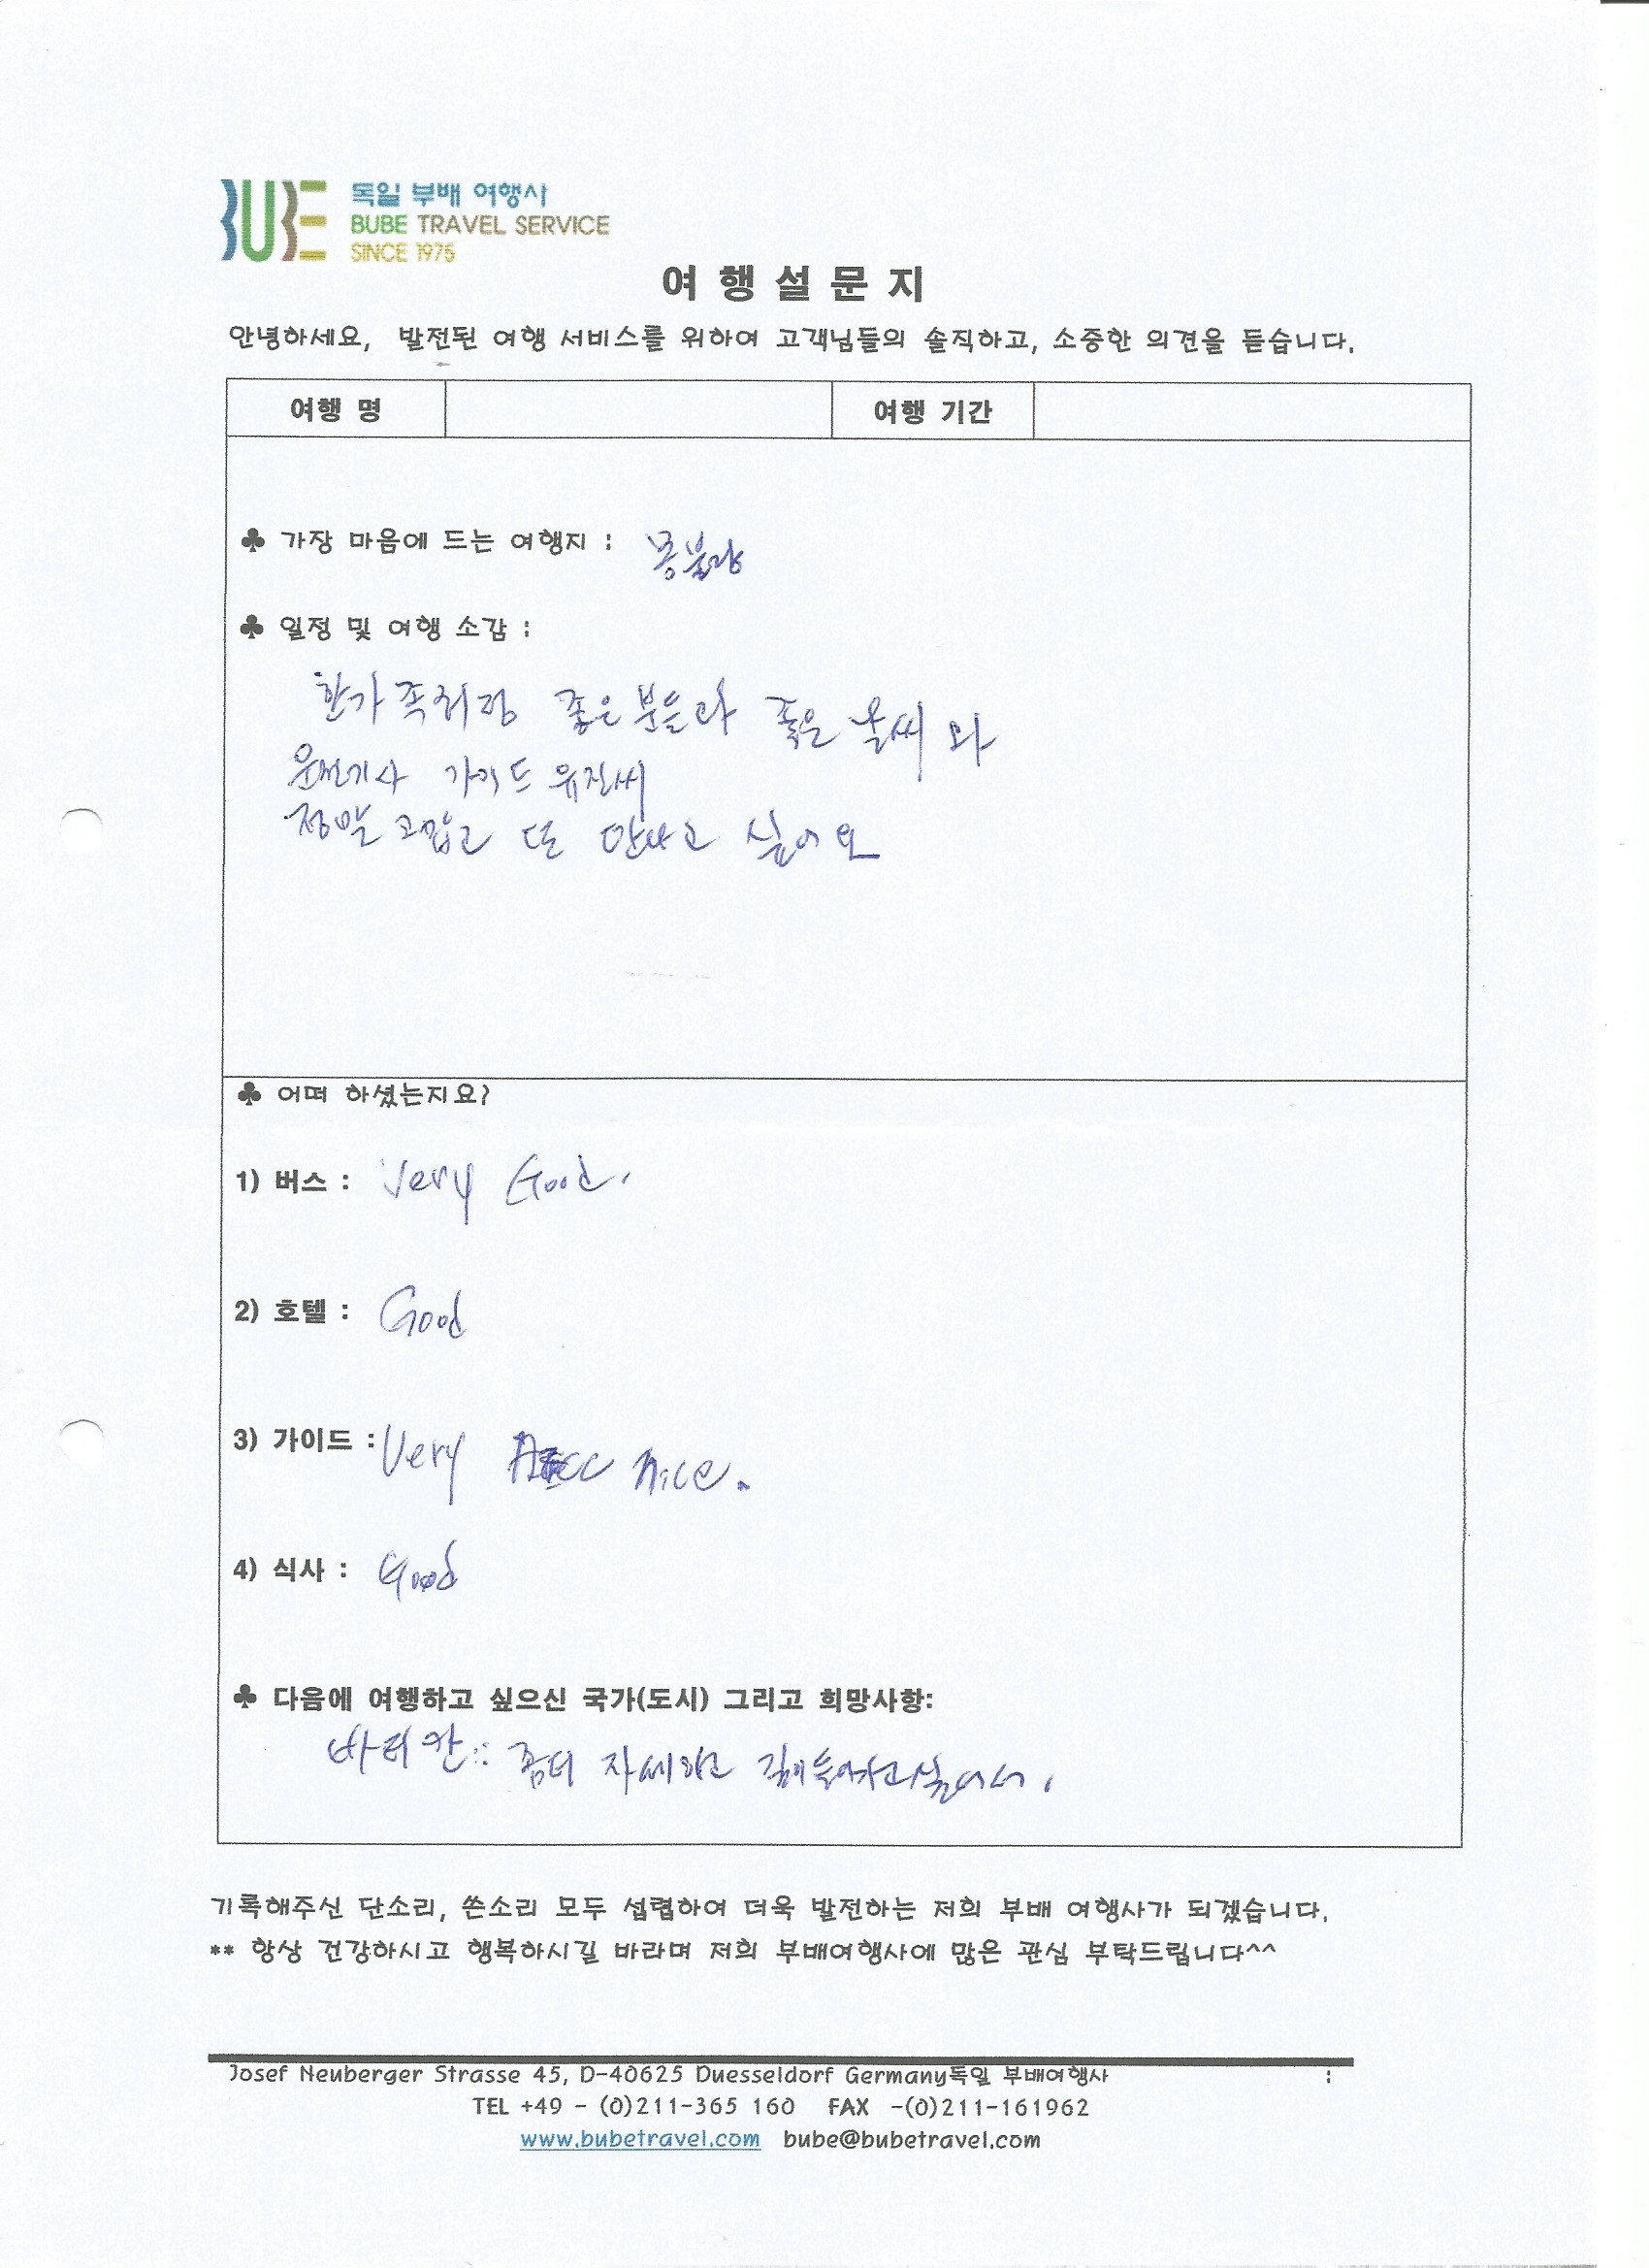 BUBE
독일 부배 여행사
BUBE TRAVEL SERVICE
SINCE 1975
여 행 설 문 지
안녕하세요, 발전된 여행 서비스를 위하여 고객님들의 솔직하고, 소중한 의견을 듣습니다.
여행 명 여행 기간
♣ 가장 마음에 드는 여행지 : 몽블랑
♣ 일정 및 여행 소감 :
한가족처럼 좋은분들과 좋은 날씨와
운전기사 가이드 유진씨
정말 고맙고 또 만나고 싶어요
♣ 어떠 하셨는지요?
1) 버스 : Very Good.
2) 호텔 : Good
3) 가이드 : Very nice.
4) 식사 : Good
♣ 다음에 여행하고 싶으신 국가(도시) 그리고 희망사항:
바티칸 : 좀더 자세하고 깊이 들어가고 싶어서.
기록해주신 단소리, 쓴소리 모두 섭렵하여 더욱 발전하는 저희 부배 여행사가 되겠습니다.
** 항상 건강하시고 행복하시길 바라며 저희 부배여행사에 많은 관심 부탁드립니다^^
Josef Neuberger Strasse 45, D-40625 Duesseldorf Germany독일 부배여행사 :
TEL +49 - (0)211-365 160 FAX -(0)211-161962
www.bubetravel.com bube@bubetravel.com